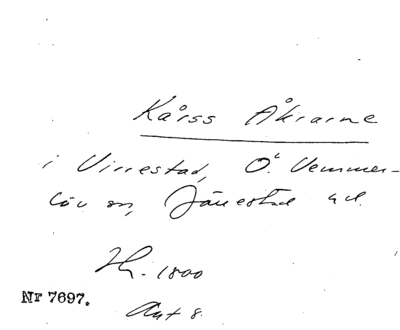 Kårss Åkrarne
i Virrestad, Ö. Vemmer-
löv sn, Järrestad hd.
H. 1800
Ant 8.
Nr 7697.